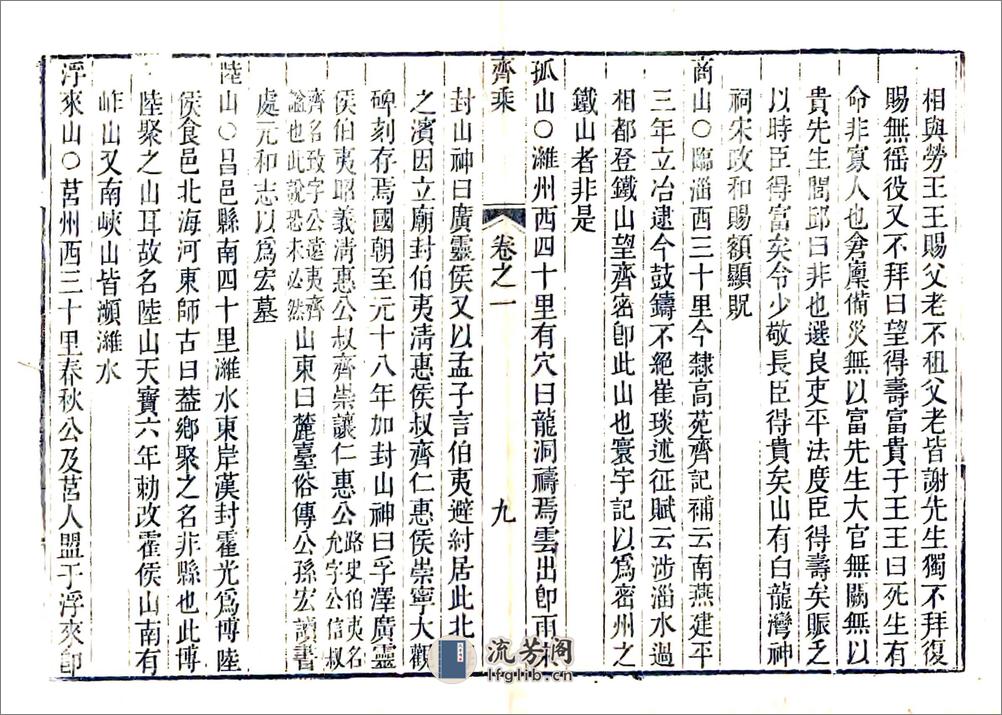 相與勞王王賜父老不租父老皆謝先生獨不拜復
賜無徭役又不拜曰望得壽富貴于王王曰死生有
命非寡人也倉廩備災無以富先生大官無闕無以
貴先生閭邱曰非也選良吏平法度臣得壽矣賑乏
以時臣得富矣令少敬長臣得貴矣山有白龍灣神
祠宋政和賜額顯貺
商山○臨淄西三十里今隸高苑齊記補云南燕建平
三年立冶逮今鼓鑄不絕崔琰述征賦云涉淄水過
相都登鐵山望齊密卽此山也寰宇記以爲密州之
鐵山者非是
孤山○濰州西四十里有穴曰龍洞禱焉雲出卽雨宋
齊乘
卷之一
九
封山神曰廣靈侯又以孟子言伯夷避紂居此北海
之濱因立廟封伯夷淸惠侯叔齊仁惠侯崇寧大觀
碑刻存焉國朝至元十八年加封山神曰孚澤廣靈
侯伯夷昭義淸惠公叔齊崇讓仁惠公路史伯夷名允字公信叔
齊名致字公遠夷齊諡也此說恐未必然山東曰麓臺俗傳公孫宏讀書
處元和志以爲宏墓
陸山○昌邑縣南四十里濰水東岸漢封霍光爲博陸
侯食邑北海河東師古曰葢鄉聚之名非縣也此博
陸聚之山耳故名陸山天寶六年勅改霍侯山南有
岞山又南峽山皆瀕濰水
浮來山○莒州西三十里春秋公及莒人盟于浮來卽
流芳阁
lfglib.cn